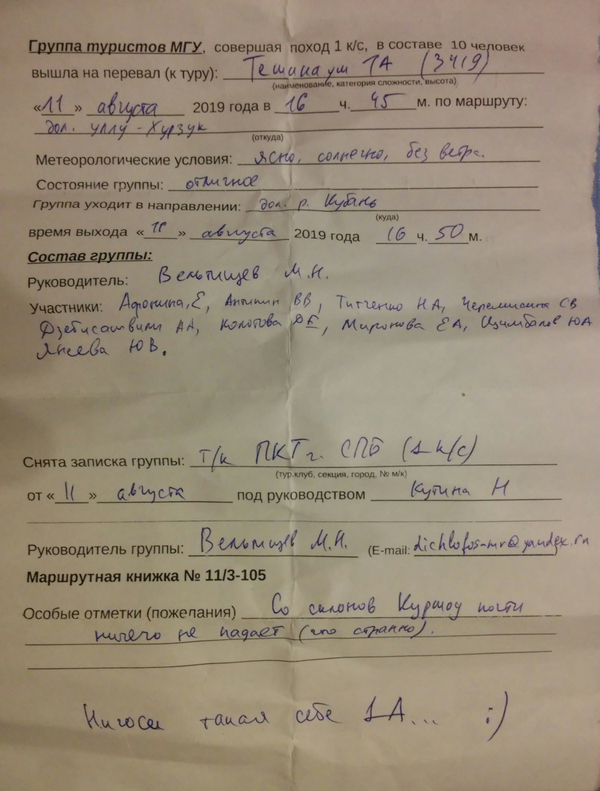 Группа туристов МГУ, совершая поход 1 к/с, в составе 10 человек
вышла на перевал (к туру): 1А (3419)
(наименование, категория сложности, высота)
«11» августа 2019 года в 16 ч. 45 м. по маршруту:
дол. уллу-Хурзук
(откуда)
Метеорологические условия: ясно, солнечно, без ветра.
Состояние группы: отличное
Группа уходит в направлении: дол. р. Кубань
(куда)
время выхода «11» августа 2019 года 16 ч. 50 м.
Состав группы:
Руководитель: Вельтищев М.Н.
Участники: Афонина Е, Аникин ВВ, Титченко НА, Черемисина СВ
Дзетисашвили АА, Колотова ДЕ, Миронова ЕА, Цымбалов ЮА
Янсева ЮВ.
Снята записка группы: т/к ПКТ г. СПб (1 к/с)
(тур.клуб, секция, город, № м/к)
от «11» августа под руководством Кутина Н
Руководитель группы: Вельтищев М.Н. (E-mail: dichlofos-mv@yandex.ru
Маршрутная книжка № 11/3-105
Особые отметки (пожелания) Со склонов Куршоу почти
ничего не падает (что странно).
Нигосеи такая себе 1А... :)